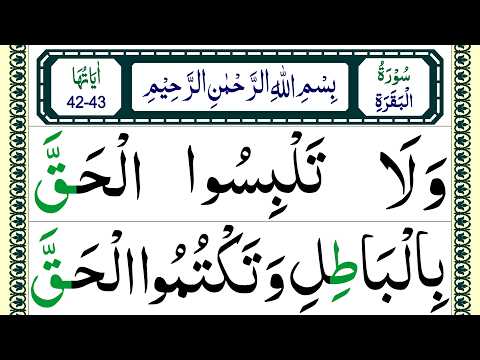 سُوْرَةُ الْبَقَرَةِ
بِسْمِ اللهِ الرَّحْمٰنِ الرَّحِيْمِ
اٰيَاتُهَا 42-43
وَلَا تَلْبِسُوا الْحَقَّ
بِالْبَاطِلِ وَتَكْتُمُوا الْحَقَّ